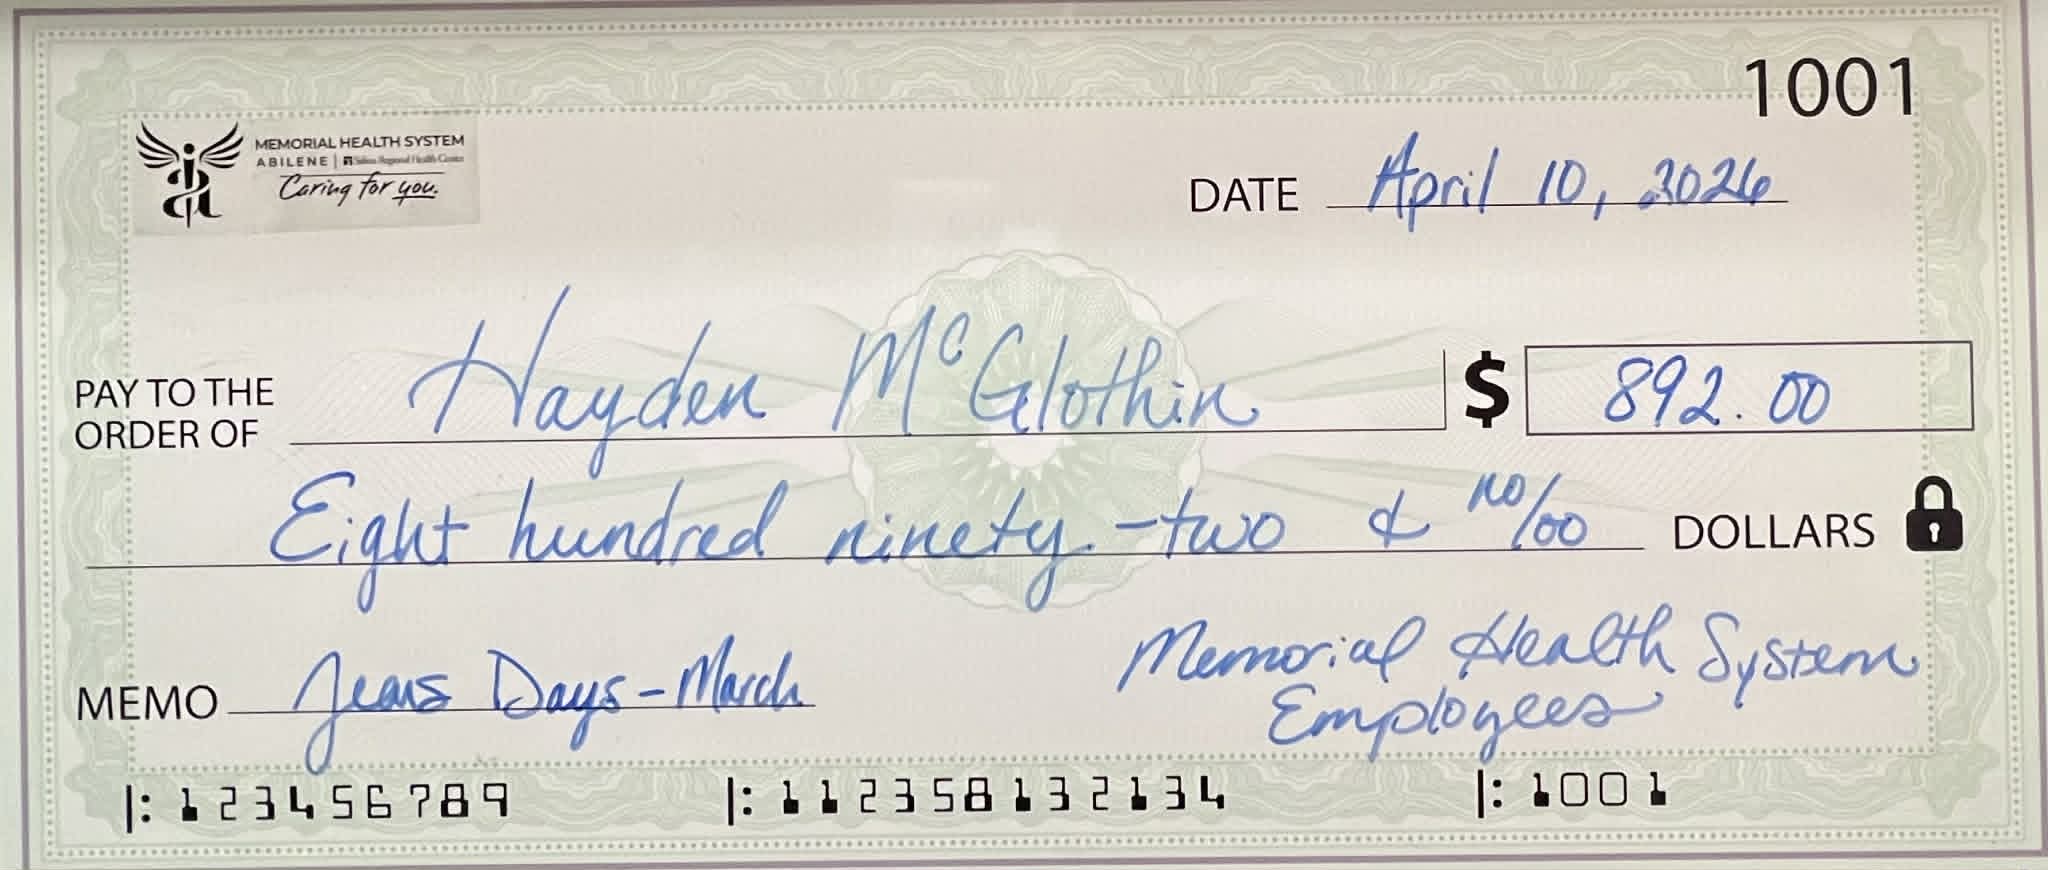 1001
MEMORIAL HEALTH SYSTEM
ABILENE | Salina Regional Health Center
Caring for you.
DATE April 10, 2026
PAY TO THE
ORDER OF Hayden McGlothin $ 892.00
Eight hundred ninety-two & no/00 DOLLARS
Memorial Health System
Employees
MEMO Jeans Days - March
|: 123456789 |: 112358132134 |: 1001